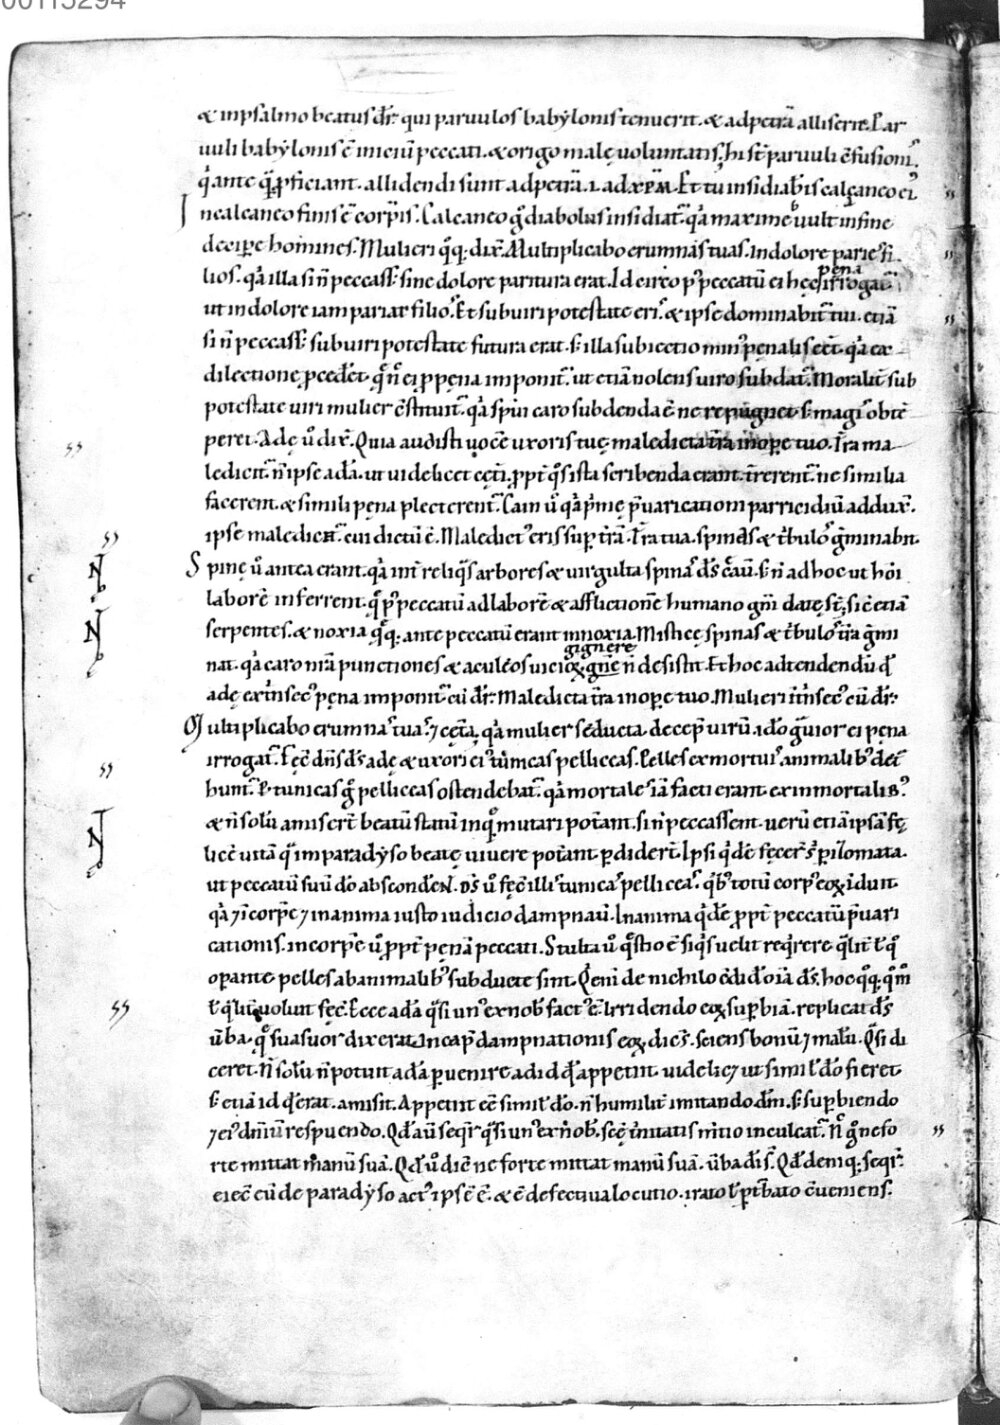 00115294
& inpsalmo beatus dr̄. qui paruulos babẏlonis tenuerit. & adpetrā alliserit. Par
uuli babẏlonis ē iniciū peccati. & origo malę uoluntatis. hi st̄ paruuli c̄fusionis.
q̄ ante q̄ p̄ficiant. allidendi sunt adpetrā .i. ad xp̄m. Et tu insidiab̄is calcaneo ei᾿
In calcaneo finis ē corp̄is. Calcaneo g̊ diabolus insidiat̄. q̄a maxime uult infine
decip̄e homines. Mulieri q̄q; dix̄. Multiplicabo erumnas tuas. In dolore paries fi
lios. q̄a illa si n̄ peccass& sine dolore paritura erat. Id circo p᾿ peccatū ei hęc pena irrogat̄
ut indolore iam pariat filios. Et subuiri potestate eris. & ipse dominabit̄ tui. etiā
si n̄ peccass& subuiri potestate futura erat. s; illa subiectio min᾿ penalis eēt. q̄a ex
dilectione p̄ced&. q̄ n̄c ei p̄ pena imponit̄. ut etiā nolens uiro subdat̄. Moralit̄ sub
potestate uiri mulier c̄stituit̄. q̄a sp̄ui caro subdenda ē ne repugnet s; magis obtē
peret. Adę ū dix̄. Quia audisti uocē uxoris tuę maledicta t̄ra inope tuo. T̄ra ma
ledicit̄. n̄ ipse adā. ut uidelicet cęt̄i. p̄pt̄ q̄s ista scribenda erant. t̄rerent̄. ne similia
facerent. & simili pęna plecterent̄. Cain ū q̄a p̄mę p̄uaricationi parricidiū addux̄.
ipse maledicit̄. cui dictū ē. Maledict᾿ eris sup t̄rā. T̄ra tua. spinas & t̄bulos g̊minabit.
Spinę ū antea erant. q̄a int̄ reliq̄s arbores & uirgulta spinas d̄s c̄auit. s; n̄ ad hoc ut hōi
laborē inferrent. q̄ p᾿ peccatū ad laborē & afflictionē humano gn̄i datę st̄. sic etiā
serpentes. & noxia q̄q; ante peccatū erant innoxia. Misticę spinas & t̄bulos t̄ra g̊mi
nat. q̄a caro nr̄a punctiones & aculeos uicioꝝ gignere n̄ desistit. Et hoc adtendendū q̄
adę extinsec᾿ pęna imponit̄. cū dr̄. Maledicta t̄ra inope tuo. Mulieri int̄nsec᾿ cū dr̄.
Multiplicabo erumnas tuas. 7 cęt̄a. q̄a mulier seducta. decep̄ uirū. idō g̊uior ei pęna
irrogat̄. Fec̄ dn̄s d̄s adę & uxori ei᾿ tunicas pelliceas. Pelles ex mortuis animalib᾿ det̄
hunt̄. P tunicas g̊ pelliceas ostendebat̄. q̄a mortales iā facti erant. ex inmortalib᾿
& n̄ solū amiser̄t beatū statū inq̊ mutari pot̄ant. si n̄ peccassent. uerū etiā ipsā fę
licē uitā q̄ imparadẏso beatę uiuere pot̄ant. pdider̄t. Ipsi q̄dē fęcer̄s pizomata.
ut peccatū suū dō absconder̄. D̄s ū fęc̄ illis tunicas pelliceas. q̄b᾿ totū corp᾿ eoꝝ iduit.
q̄a 7 ī corpe 7 inanima iusto iudicio dampnauit. Inanima q̄dē p̄pt̄ peccatū p̄uari
cationis. incorpe ū p̄pt̄ pęnā peccati. Stulta ū q̄stio ē si q̄s uelit req̄rere q̄lit̄ t̄ q̊
opante pelles ab animalib᾿ subductę sint. Qeni de nichilo c̄didit oīa d̄s. hoc q̄q; q̊m̄
t̄ q̄lit̄ uoluit fęc̄. Ecce adā q̄si un᾿ ex nob fact᾿ ē. Irridendo eoꝝ supbiā. replicat d̄s
ūba. q̄ suasuor dixerat. Incap̄ dampnationis eoꝝ dicēs. sciens bonū 7 malū. Q̄si di
ceret. N̄ solū n̄ potuit adā puenire ad id q̄ appetiit. uidelic& ut similis dō fieret
s; etiā id q̄ erat. amisit. Appetiit eē similis dō. n̄ humilit̄ imitando dm̄. s; supbiendo
7 ei᾿ dn̄iū respuendo. Qd̄ aū seq̄r̄ q̄si un᾿ ex nob. scę t̄nitatis m̄tio inculcat̄. N̄c g̊ ne fo
rte mittat manū suā. Qd̄ ū dic̄ ne forte mittat manū suā. ūba d̄i s. Qd̄ deniq; seq̄r̄
eiec̄ eū de paradẏso act᾿ ipse ē. & ē defectiua locutio. irato t̄ pt̄bato c̄ueniens.